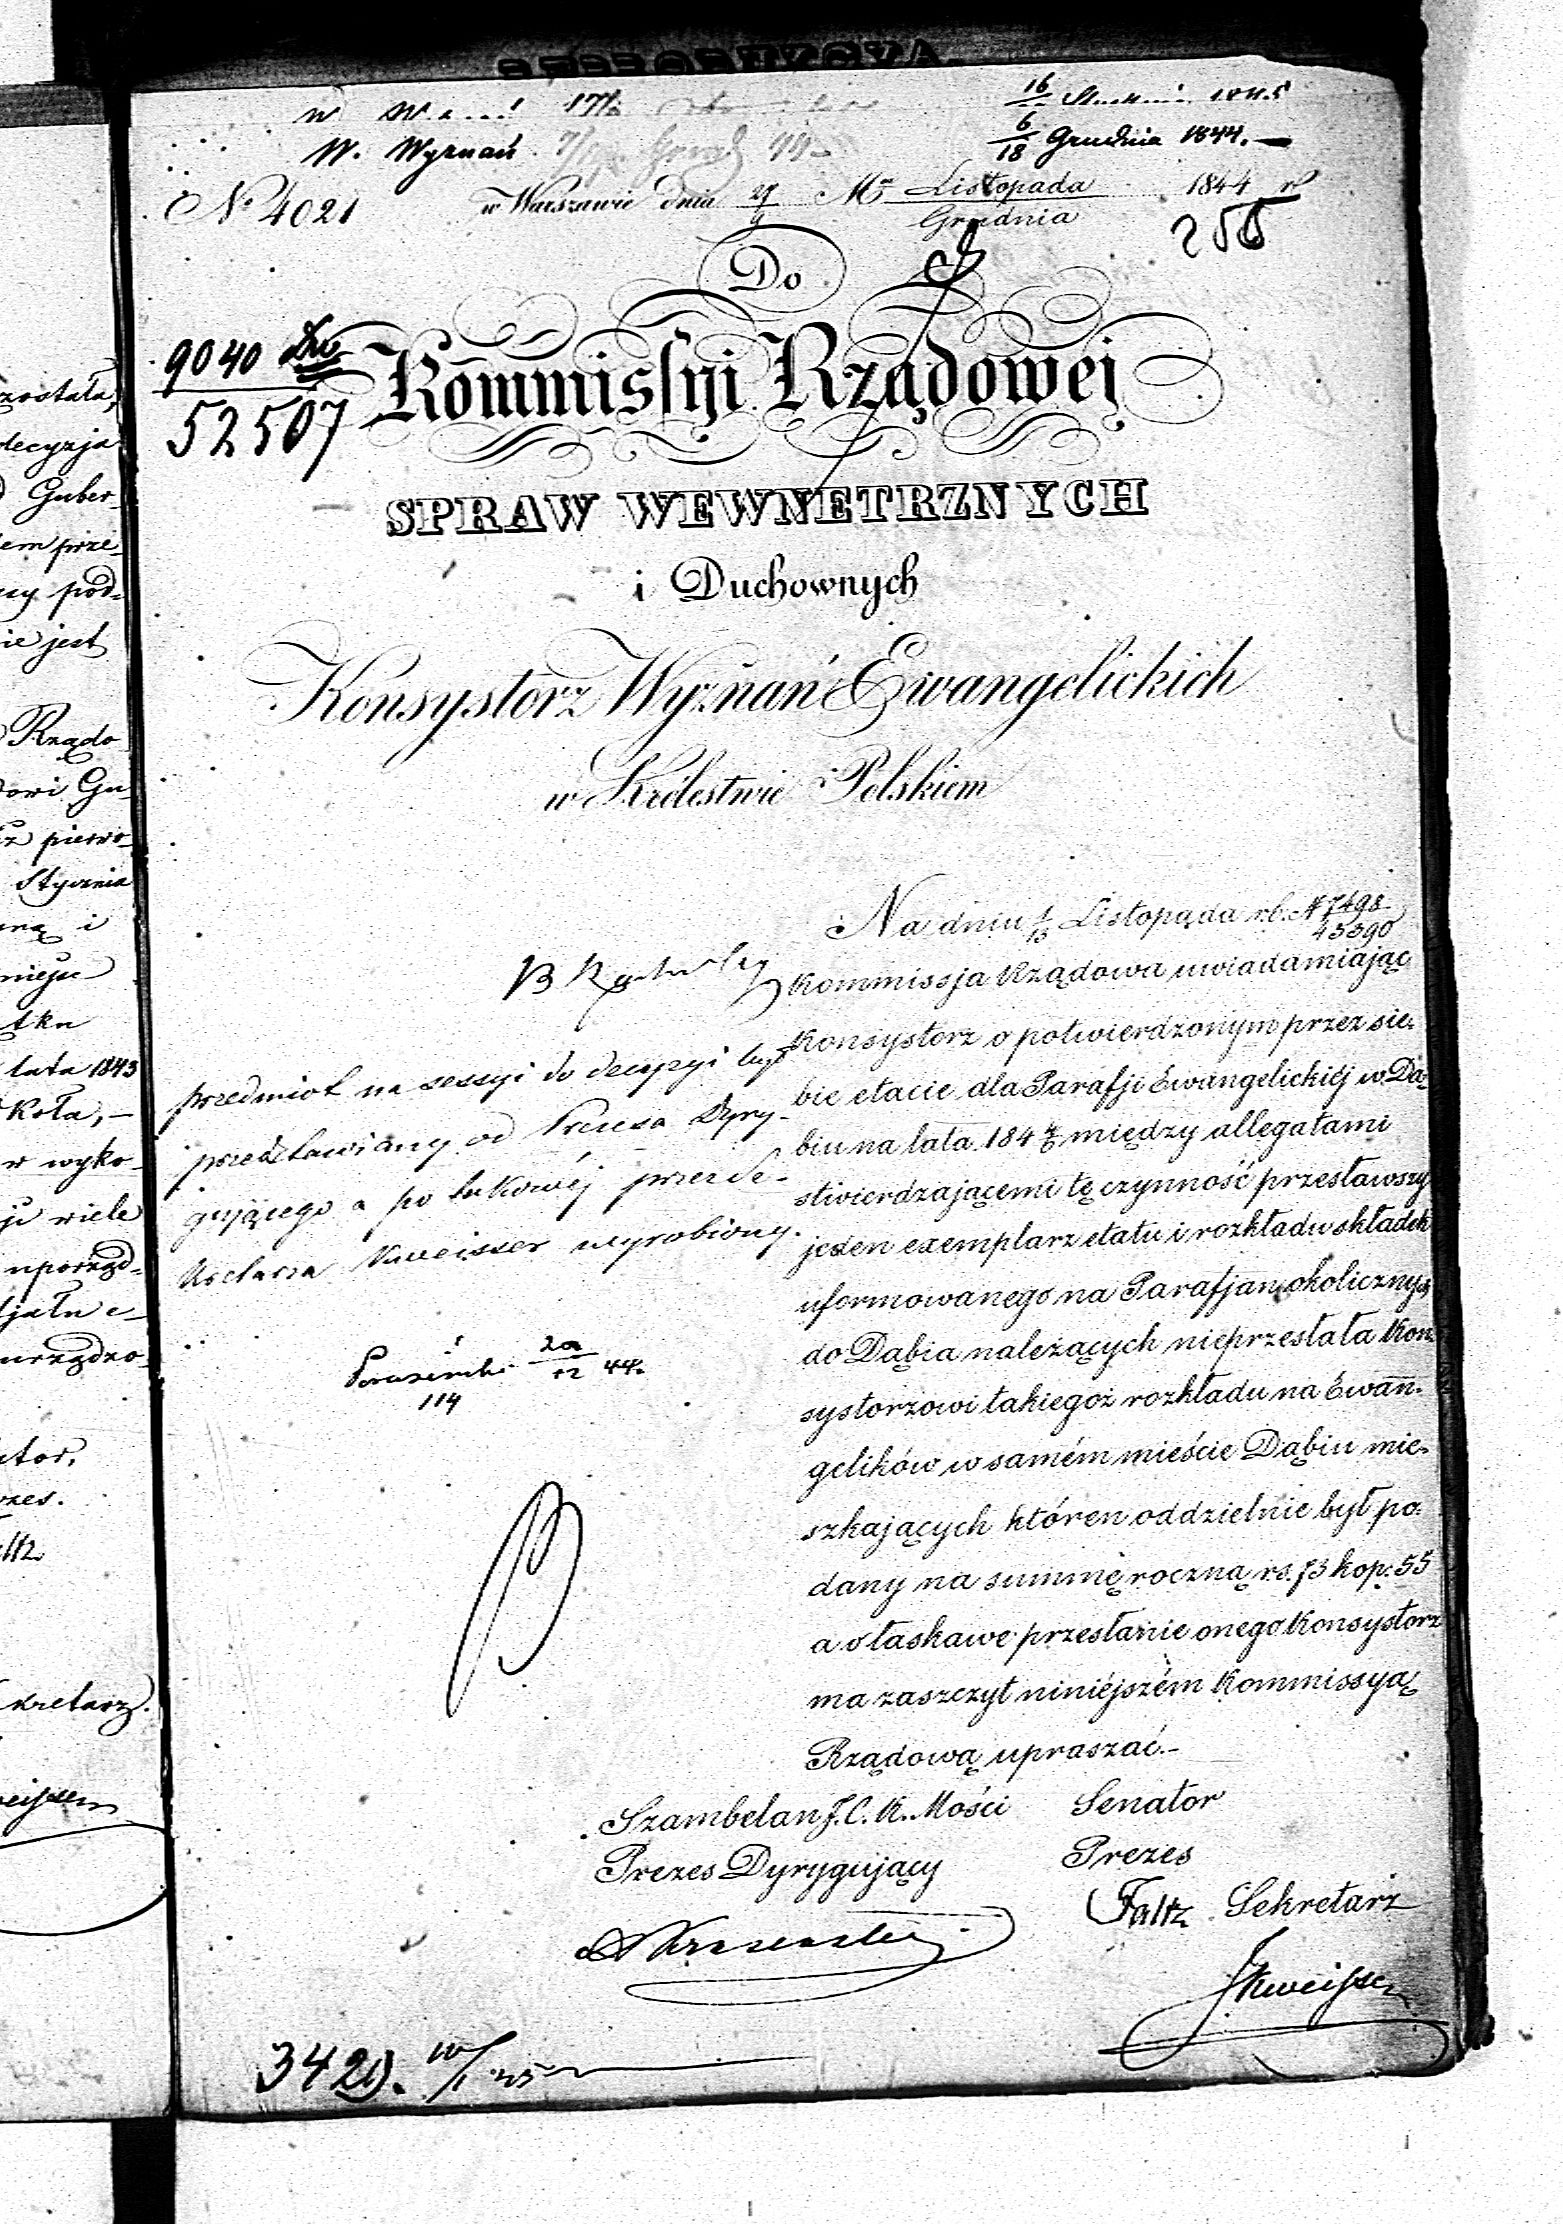 W. Wyznań
6/18 Grudnia 1844.
No 4021 w Warszawie dnia Mca Listopada 1844 r
Grudnia
255
Do
9040
52507
Kommissyi Rządowej
SPRAW WEWNETRZNYCH
i Duchownych
Konsystorz Wyznań Ewangelickich
w Królestwie Polskiem
Na dniu 1/13 Listopada r.b. N 7498
45390
Kommissja Rządowa uwiadamiając
Konsystorz o potwierdzonym przez sie-
bie etacie dla Parafji Ewangelickiéj w Dą-
biu na lata 184 między allegatami
stwierdzającemi tę czynność przesławszy
jeden exemplarz etatu i rozkładu składek
uformowanego na Parafjan okolicznych
do Dąbia należących nieprzesłała Kon-
systorzowi takiegoż rozkładu na Ewan-
gelików w samém mieście Dąbiu mie-
szkających któren oddzielnie był po-
dany na summę roczną rs. 73 kop: 55
a o łaskawe przesłanie onego Konsystorz
ma zaszczyt niniéjszém Kommissyą
Rządową upraszać.-
przedmiot na sessyi do decyzyi był
przedstawiany od Prezesa Dyry-
gującego a po takowéj przez Se-
kretarza Kweisser wyrobiony.
114
44.
Szambelan J.C.K. Mości
Prezes Dyrygujący
Senator
Prezes
Faltz
Sekretarz
Kweisser
3429.
została,
decyzja
Guber-
em prze-
pod-
ie jest
Rządo
Gu-
pierw-
Stycznia
i
lata 1843
Koła,-
w wyko-
wiele
uporząd-
urządzo-
ator,
zes.
kretarz.